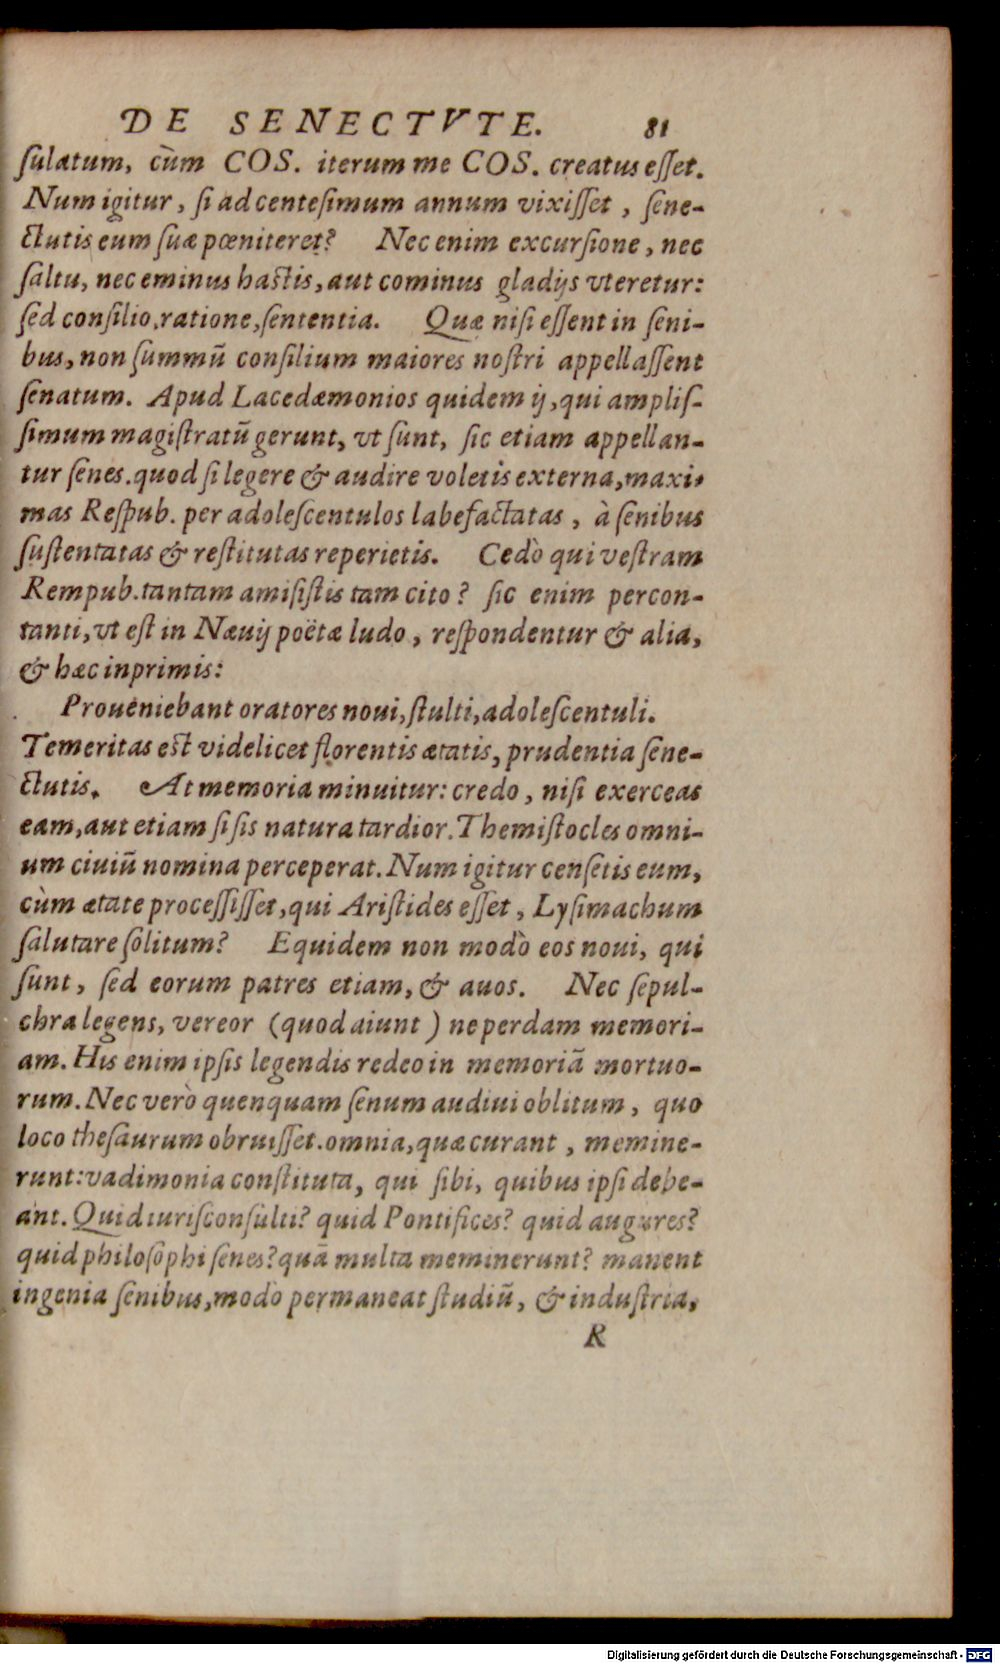 DE SENECTVTE. 81
ſulatum, cùm COS. iterum me COS. creatus eſſet.
Num igitur, ſi ad centeſimum annum vixiſſet, ſene-
ctutis eum ſuæ pœniteret? Nec enim excurſione, nec
ſaltu, nec eminus haſtis, aut cominus gladijs vteretur:
ſed conſilio, ratione, ſententia. Quæ niſi eſſent in ſeni-
bus, non ſummũ conſilium maiores noſtri appellaſſent
ſenatum. Apud Lacedæmonios quidem ij, qui ampliſ-
ſimum magiſtratũ gerunt, vt ſunt, ſic etiam appellan-
tur ſenes. quod ſi legere & audire voletis externa, maxi-
mas Reſpub. per adoleſcentulos labefactatas, à ſenibus
ſuſtentatas & reſtitutas reperietis. Cedò qui veſtram
Rempub. tantam amiſiſtis tam cito? ſic enim percon-
tanti, vt eſt in Næuij poëtæ ludo, reſpondentur & alia,
& hæc inprimis:
Proueniebant oratores noui, ſtulti, adoleſcentuli.
Temeritas eſt videlicet florentis ætatis, prudentia ſene-
ctutis. At memoria minuitur: credo, niſi exerceas
eam, aut etiam ſi ſis natura tardior. Themiſtocles omni-
um ciuiũ nomina perceperat. Num igitur cenſetis eum,
cùm ætate proceſſiſſet, qui Ariſtides eſſet, Lyſimachum
ſalutare ſolitum? Equidem non modò eos noui, qui
ſunt, ſed eorum patres etiam, & auos. Nec ſepul-
chra legens, vereor (quod aiunt) ne perdam memori-
am. His enim ipſis legendis redeo in memoriã mortuo-
rum. Nec verò quenquam ſenum audiui oblitum, quo
loco theſaurum obruiſſet. omnia, quæ curant, memine-
runt: vadimonia conſtituta, qui ſibi, quibus ipſi debe-
ant. Quid iuriſconſulti? quid Pontifices? quid augures?
quid philoſophi ſenes? quã multa meminerunt? manent
ingenia ſenibus, modò permaneat ſtudiũ, & induſtria,
R
Digitalisierung gefördert durch die Deutsche Forschungsgemeinschaft - DFG